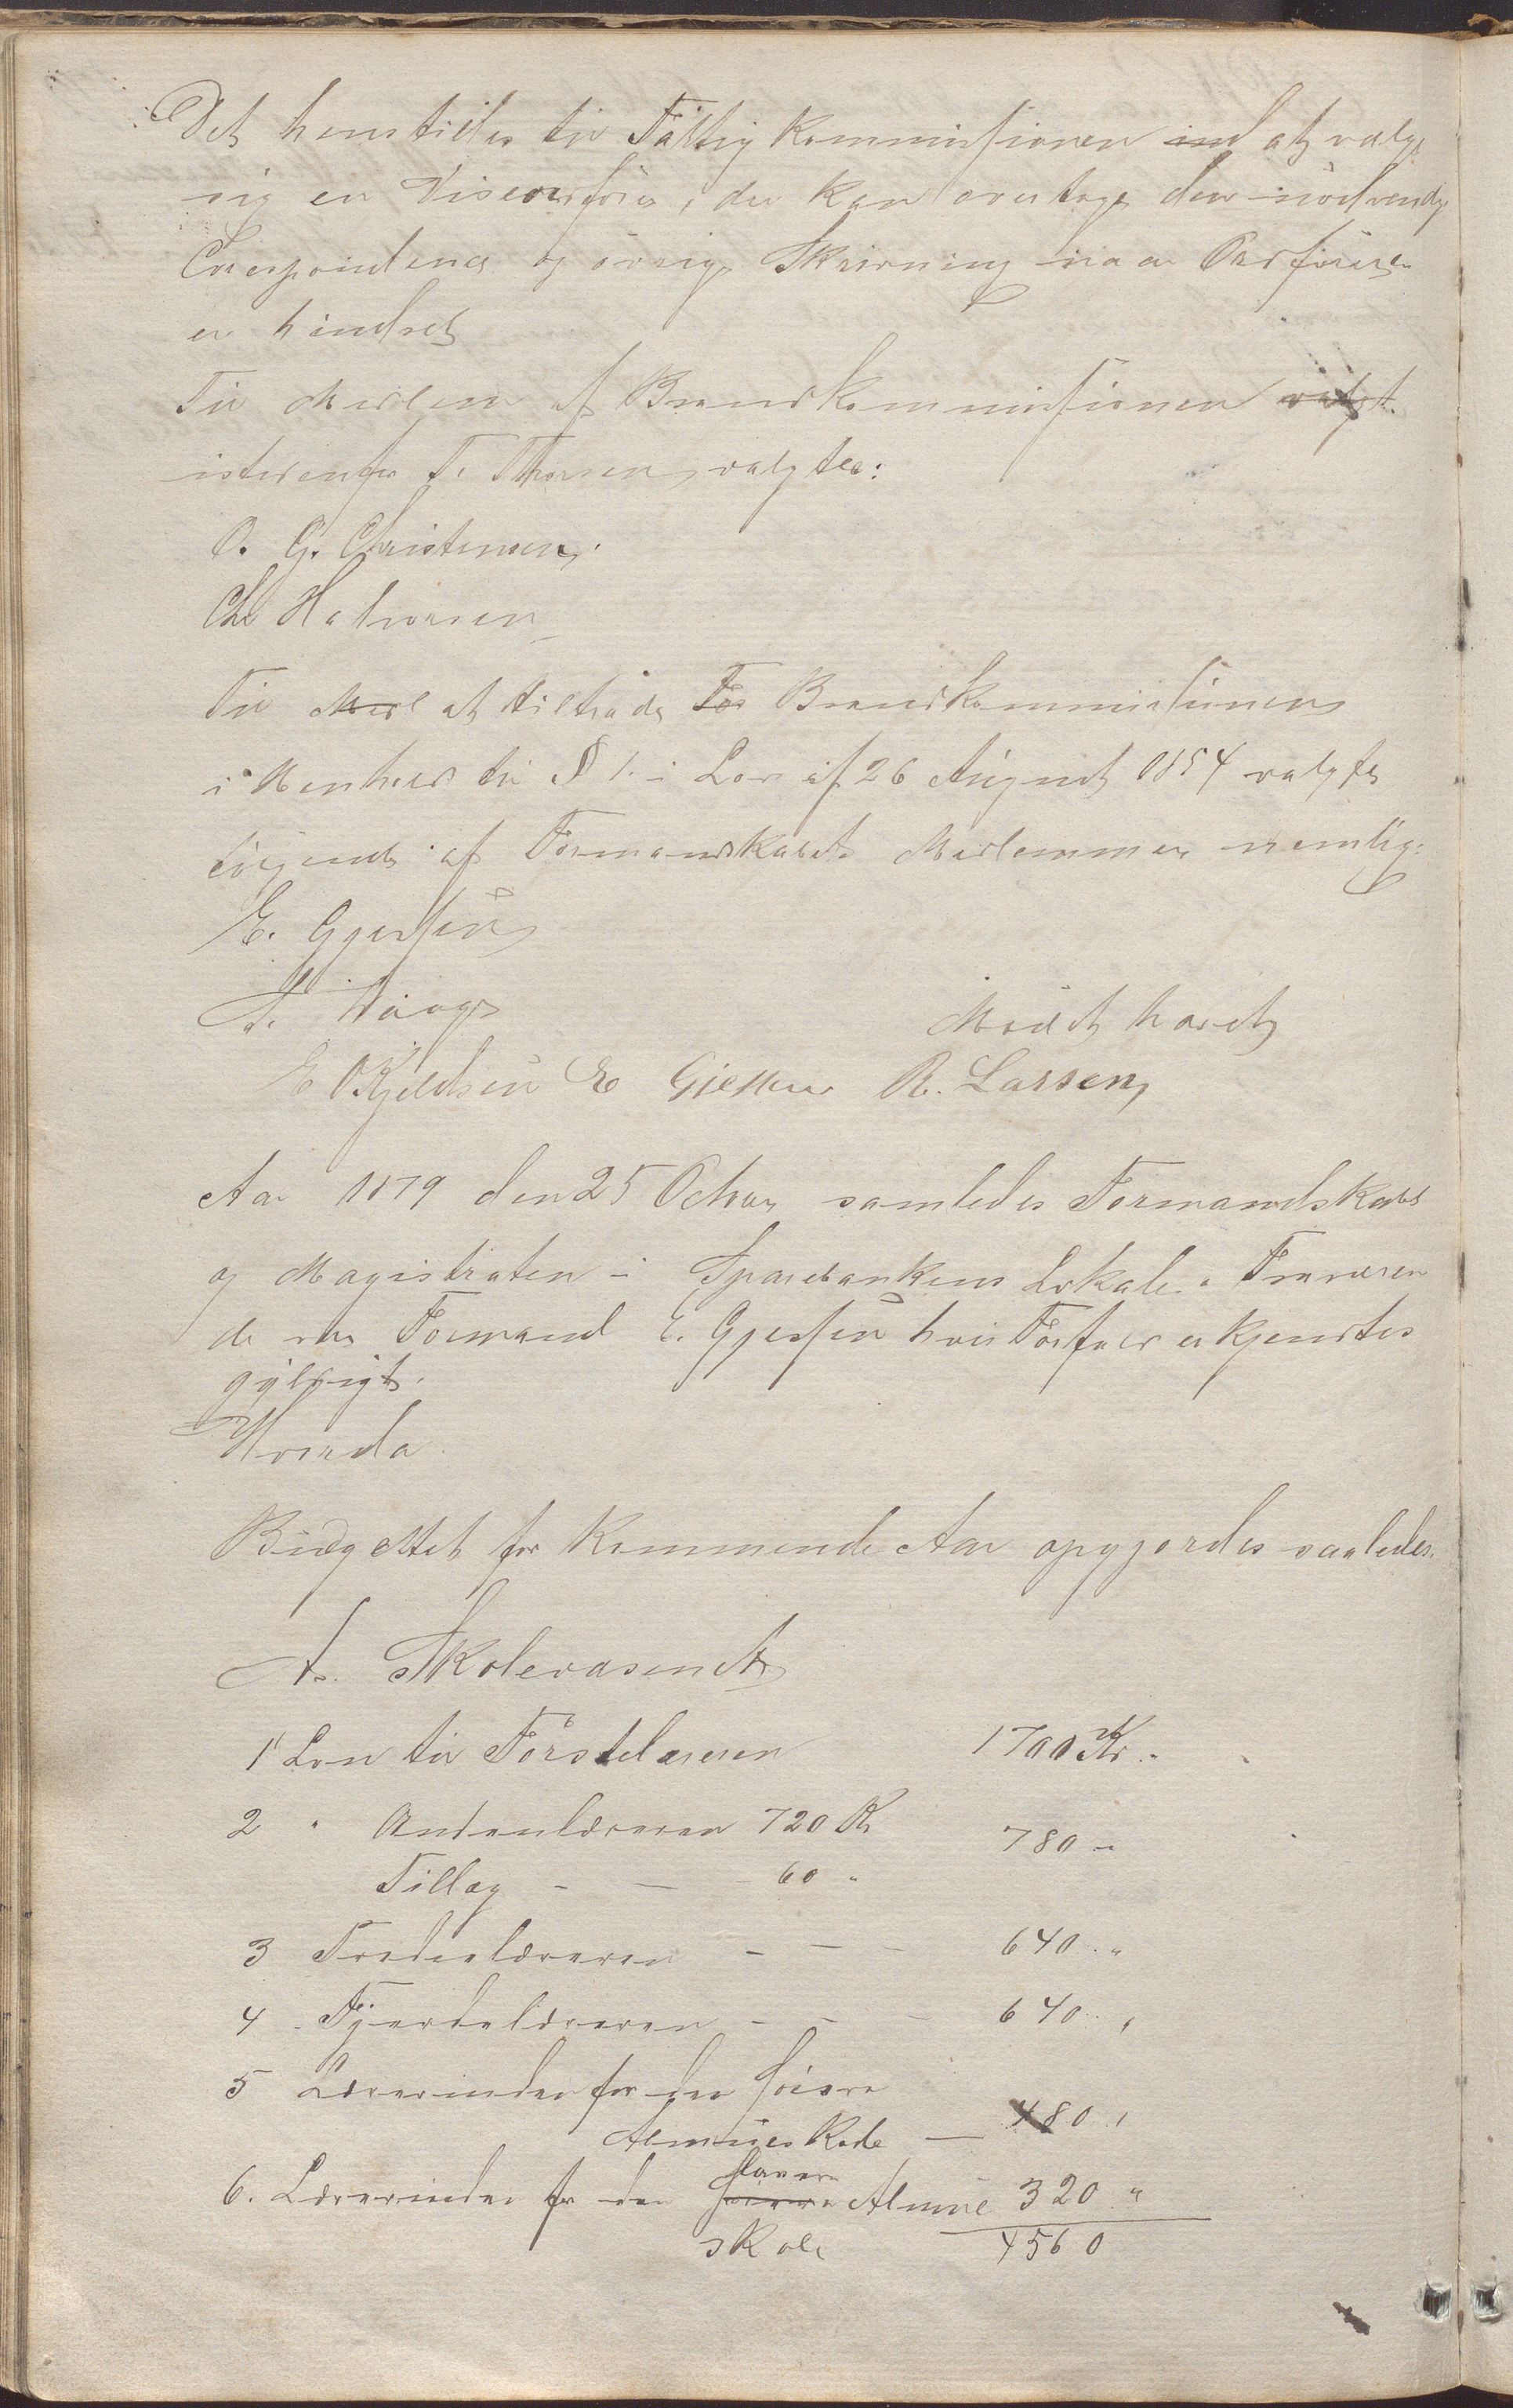 Det henstilles til Fattigkommissionen ind at vælge
sig en Viseordfører, der kan overtage den nødvendige
Corespondence og øvrige Skrivning naar Ordføreren
er hindret
Til Medlem af Brandkommissionen valgt
istedenfor T. Thorsen valgtes:
O. G. Christensen.
Chr Halvorsen
Til Medl at tiltræde For Brandkommissionen
i Henhold til § 1. i Lov af 26 August 1854 valgtes
følgende af Formandskabets Medlemmer nemlig:
E. Gjessen
T. Waage
Mødet hævet
E Kjeldsen E Gjessen R. Larsen
Aar 1879 den 25 Octbr samledes Formandskabet
og Magistraten i Sparebankens Lokale. Fraværen
de var Formand E. Gjessen hvis Forfald erkjendtes
gyldigt.
Hvorda.
Budgettet for kommende Aar opgjordes saaledes.
A. Skolevæsenet
1 Løn til Førstelæreren 1700 Kr. "
2 " Andenlæreren 720 Kr
780 "
Tillæg - - 60 "
3 Tredielæreren - - - 640 . "
4 Fjerdelæreren - - - 640 . "
5 Lærerinden for den høiere
Almueskole — 480 . "
6. Lærerinden for den høiere lavere Almue 320 "
skole 4560